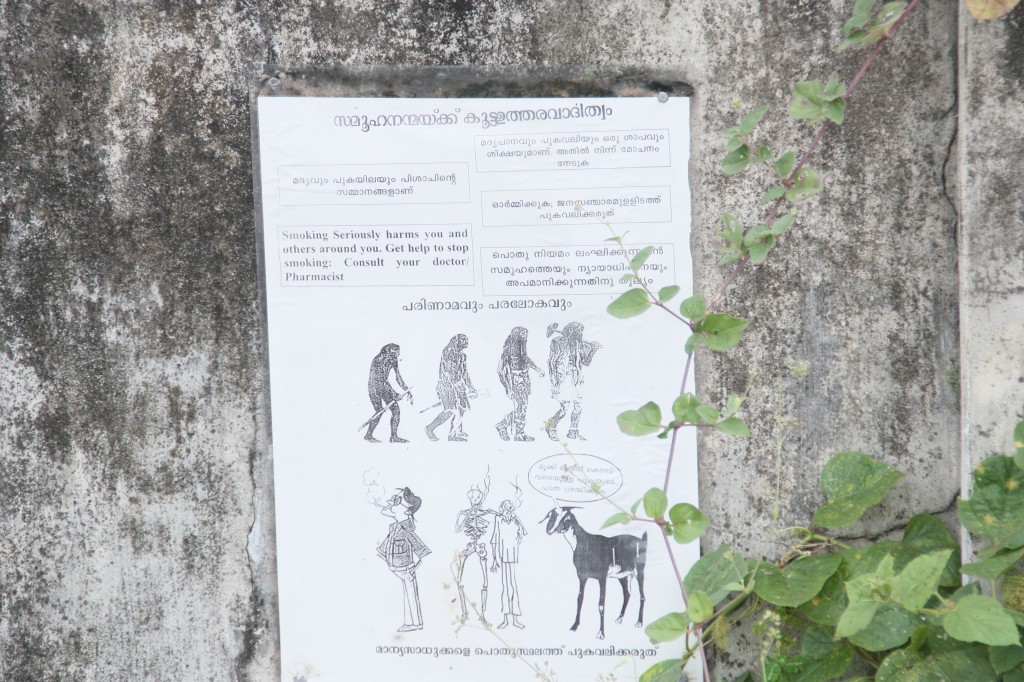 സമൂഹനന്മയ്ക്ക് കൂട്ടുത്തരവാദിത്വം
മദ്യപാനവും പുകവലിയും ഒരു ശാപവും
ശിക്ഷയുമാണ്. അതിൽ നിന്ന് മോചനം
നേടുക
മദ്യവും പുകയിലയും പിശാചിന്റെ
സമ്മാനങ്ങളാണ്
ഓർമ്മിക്കുക; ജനസഞ്ചാരമുള്ളിടത്ത്
പുകവലിക്കരുത്
Smoking Seriously harms you and
others around you. Get help to stop
smoking: Consult your doctor/
Pharmacist
പൊതു നിയമം ലംഘിക്കുന്നവൻ
സമൂഹത്തെയും ന്യായാധിപനെയും
അപമാനിക്കുന്നതിനു തുല്യം
പരിണാമവും പരലോകവും
മാന്യസാധുക്കളെ പൊതുസ്ഥലത്ത് പുകവലിക്കരുത്